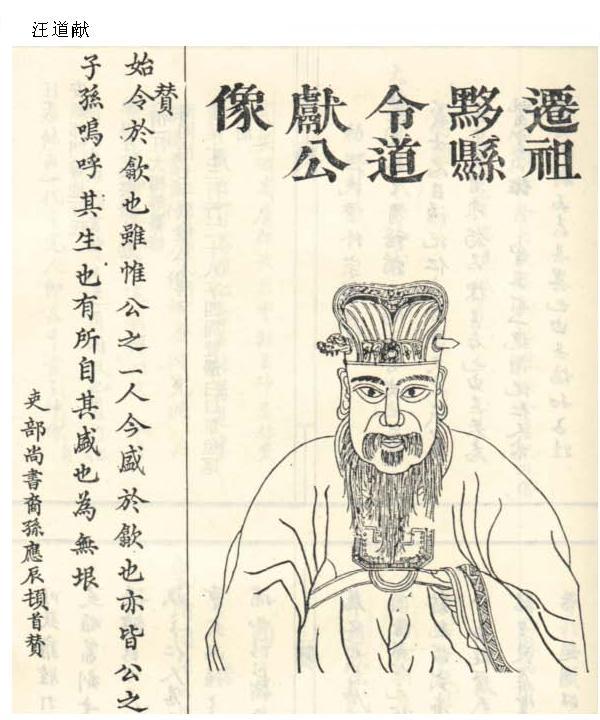 汪道献
遷祖
黟縣
令道
獻公
像
贊
始令於歙也雖惟公之一人今盛於歙也亦皆公之
子孫嗚呼其生也有所自其盛也為無垠
吏部尚書裔孫應辰頓首贊